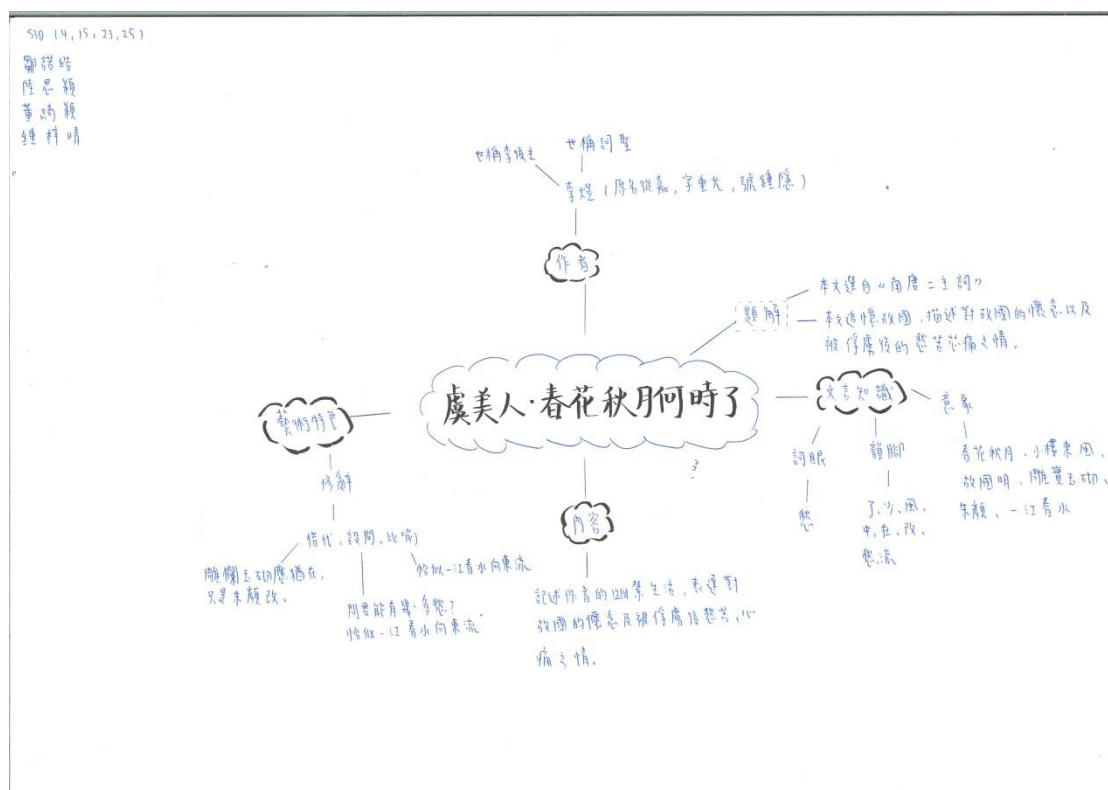 S3D (4,15,23,25)
鄒諾皓
陸思穎
黃綺穎
鍾梓晴
世稱李後主
世稱詞聖
李煜(原名從嘉,字重光,號鍾隱)
作者
題解
本文選自《南唐二主詞》
本文追懷故國,描述對故國的懷念以及
被俘虜後的愁苦悲痛之情。
虞美人·春花秋月何時了
文言知識
詞眼
愁
韻腳
了、少、風、
中、在、改、
愁、流
意象
春花秋月、小樓東風、
故國明、雕
玉砌、
朱顏、一江春水
藝術特色
修辭
借代、設問、比喻
雕欄玉砌應猶在,
只是朱顏改。
問君能有幾多愁?
恰似一江春水向東流
恰似一江春水向東流
內容
記述作者的囚禁生活,表達對
故國的懷念及被俘虜後愁苦,心
痛之情。